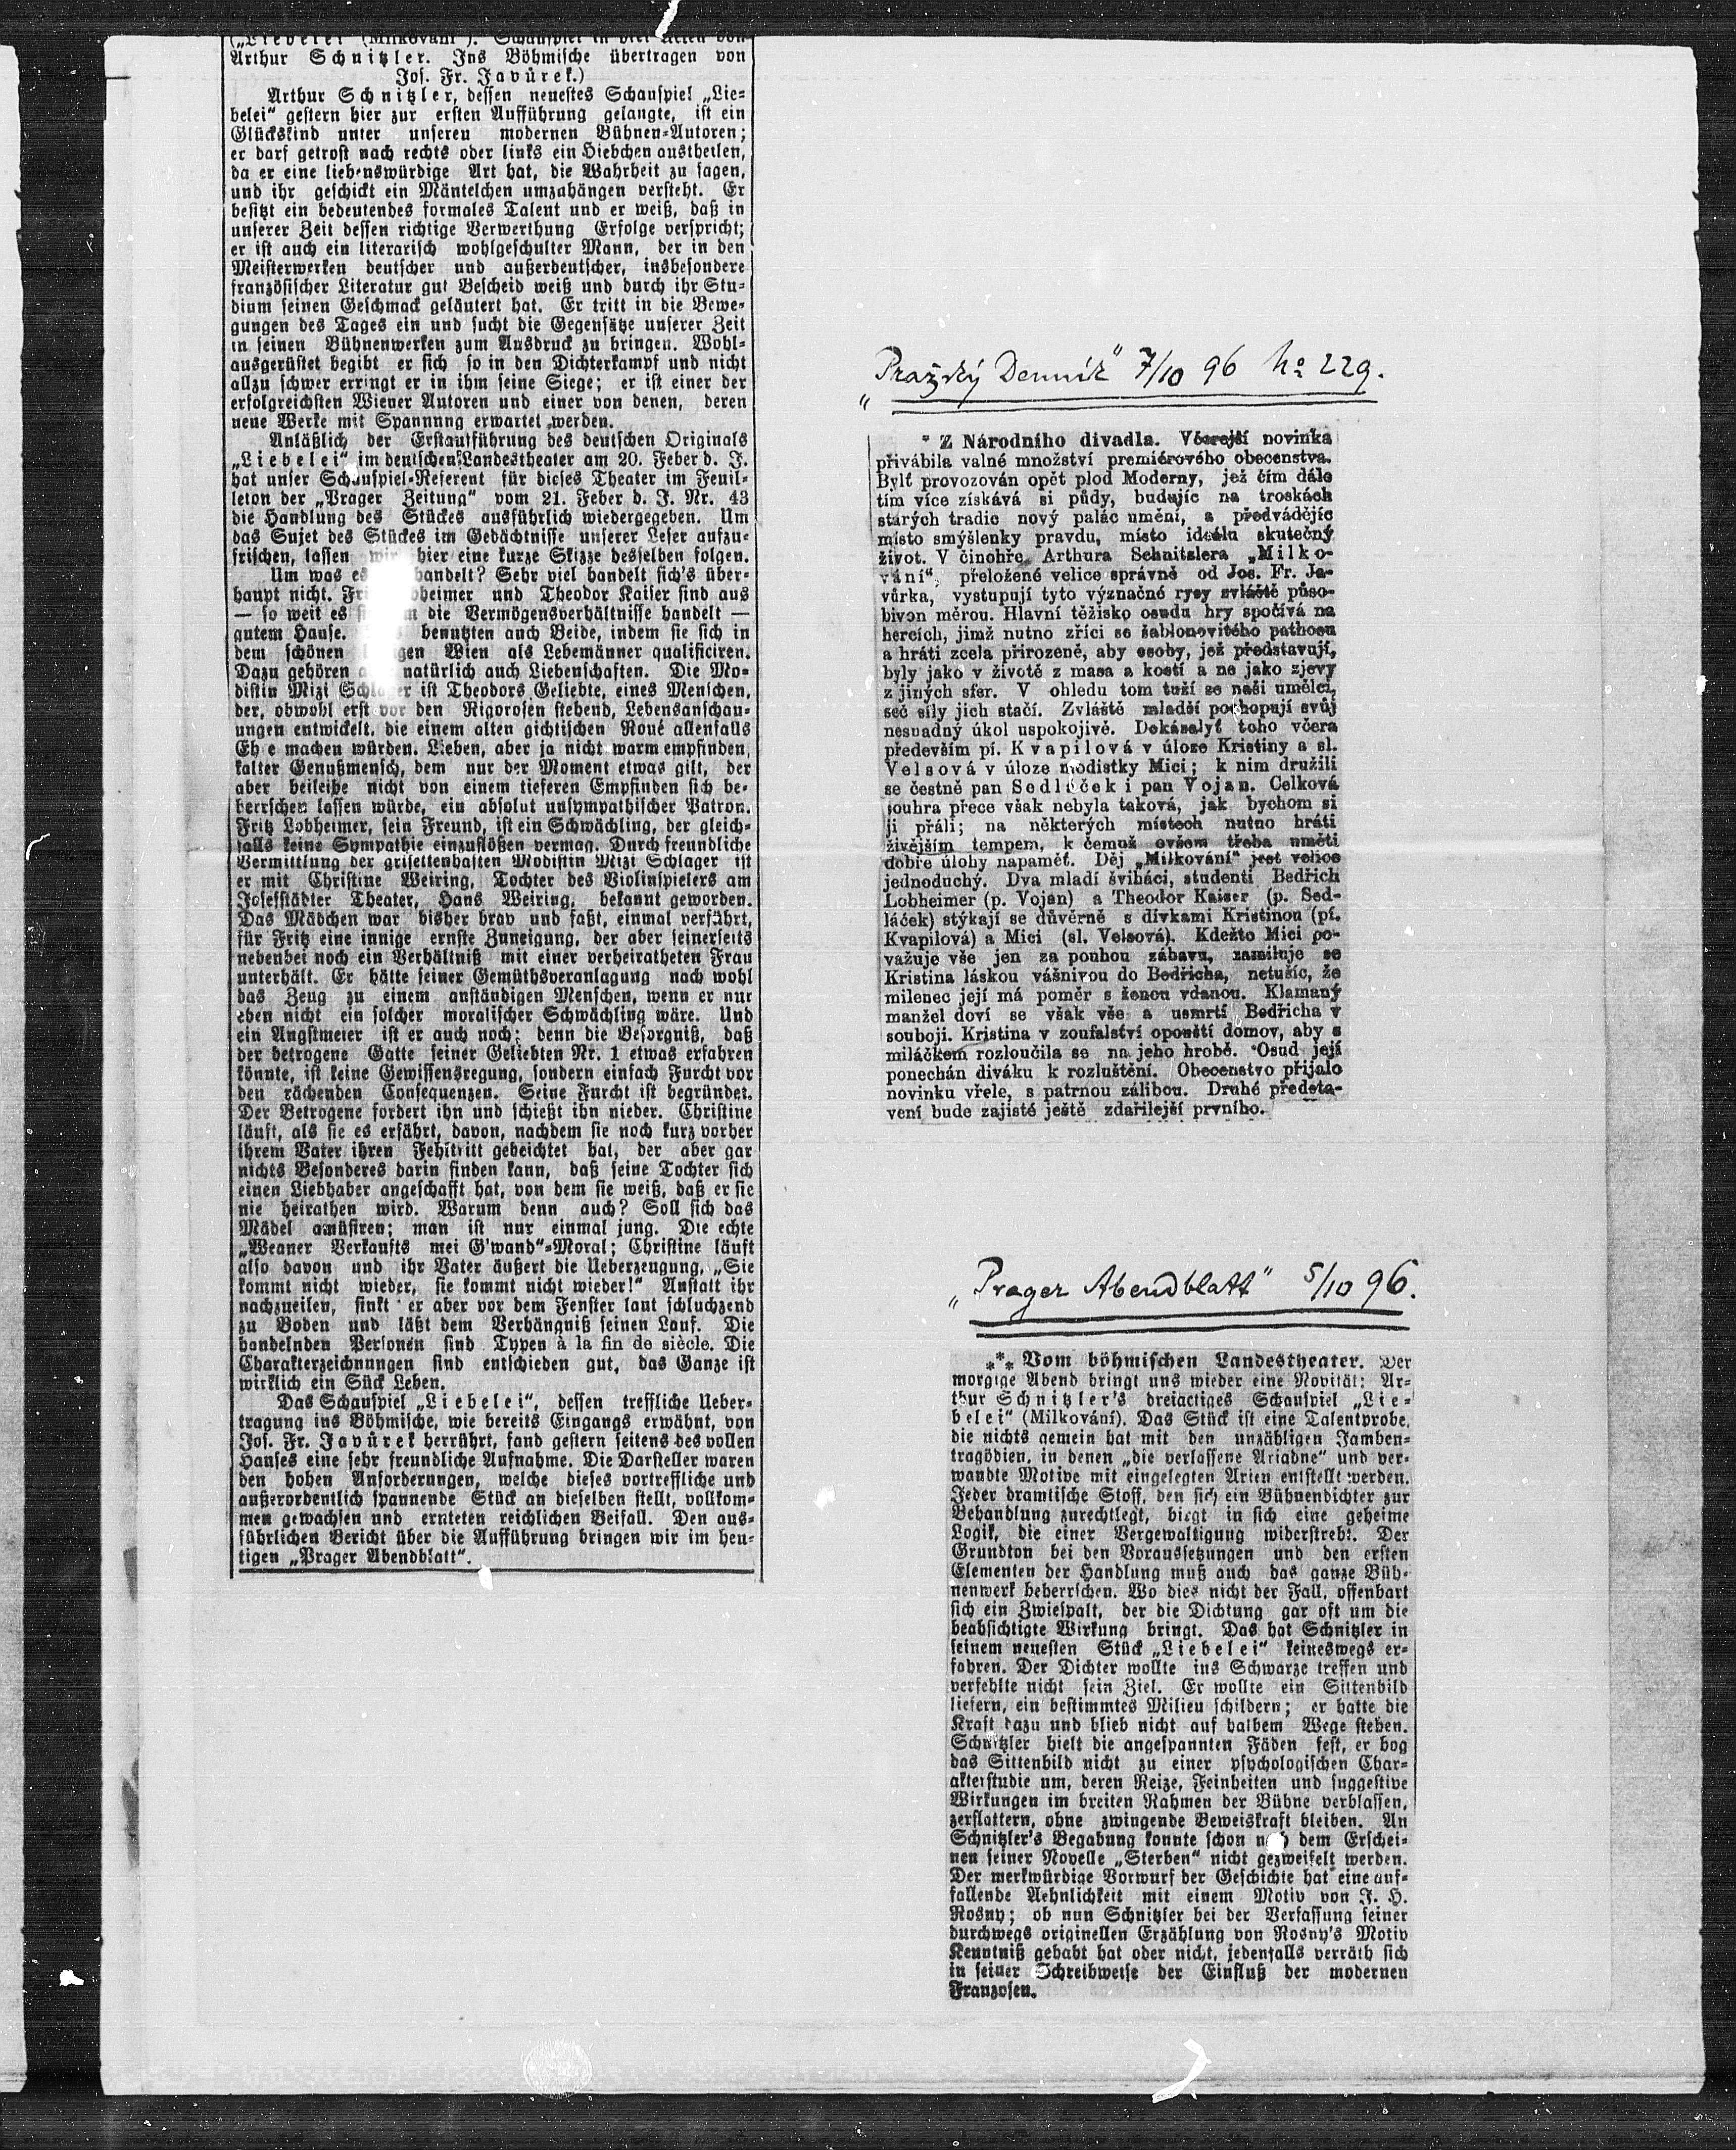 („Liebelei (Milkování“). Schauspiel in drei Akten von
Arthur Schnitzler. Ins Böhmische übertragen von
Jos. Fr. Javůrek.)
Arthur Schnitzler, dessen neuestes Schauspiel „Lie-
belei“ gestern hier zur ersten Aufführung gelangte, ist ein
Glückskind unter unseren modernen Bühnen-Autoren;
er darf getrost nach rechts oder links ein Hiebchen austheilen,
da er eine liebenswürdige Art hat, die Wahrheit zu sagen,
und ihr geschickt ein Mäntelchen umzuhängen versteht. Er
besitzt ein bedeutendes formales Talent und er weiß, daß in
unserer Zeit dessen richtige Verwerthung Erfolge verspricht;
er ist auch ein literarisch wohlgeschulter Mann, der in den
Meisterwerken deutscher und außerdeutscher, insbesondere
französischer Literatur gut Bescheid weiß und durch ihr Stu-
dium seinen Geschmack geläutert hat. Er tritt in die Bewe-
gungen des Tages ein und sucht die Gegensätze unserer Zeit
in seinen Bühnenwerken zum Ausdruck zu bringen. Wohl-
ausgerüstet begibt er sich so in den Dichterkampf und nicht
allzu schwer erringt er in ihm seine Siege; er ist einer der
erfolgreichsten Wiener Autoren und einer von denen, deren
neue Werke mit Spannung erwartet werden.
Anläßlich der Erstaufführung des deutschen Originals
„Liebelei“ im deutschen Landestheater am 20. Feber d. J.
hat unser Schauspiel-Referent für dieses Theater im Feuil-
leton der „Prager Zeitung“ vom 21. Feber d. J. Nr. 43
die Handlung des Stückes ausführlich wiedergegeben. Um
das Sujet des Stückes im Gedächtnisse unserer Leser aufzu-
frischen, lassen wir hier eine kurze Skizze desselben folgen.
Um was es handelt? Sehr viel handelt sich's über-
haupt nicht. Fritz Lobheimer und Theodor Kaiser sind aus
— so weit es sich um die Vermögensverhältnisse handelt —
gutem Hause. benutzten auch Beide, indem sie sich in
dem schönen Wien als Lebemänner qualificiren.
Dazu gehören natürlich auch Liebenschaften. Die Mo-
distin Mizi Schlager ist Theodors Geliebte, eines Menschen,
der, obwohl erst vor den Rigorosen stehend, Lebensanschau-
ungen entwickelt, die einem alten gichtischen Roué allenfalls
Ehre machen würden. Lieben, aber ja nicht warm empfinden,
kalter Genußmensch, dem nur der Moment etwas gilt, der
aber beileibe nicht von einem tieferen Empfinden sich be-
herrschen lassen würde, ein absolut unsympathischer Patron.
Fritz Lobheimer, sein Freund, ist ein Schwächling, der gleich-
falls keine Sympathie einzuflößen vermag. Durch freundliche
Vermittlung der grisettenhaften Modistin Mizi Schlager ist
er mit Christine Weiring, Tochter des Violinspielers am
Josefstädter Theater, Hans Weiring, bekannt geworden.
Das Mädchen war bisher brav und faßt, einmal verführt,
für Fritz eine innige ernste Zuneigung, der aber seinerseits
nebenbei noch ein Verhältniß mit einer verheiratheten Frau
unterhält. Er hätte seiner Gemüthsveranlagung nach wohl
das Zeug zu einem anständigen Menschen, wenn er nur
eben nicht ein solcher moralischer Schwächling wäre. Und
ein Angstmeier ist er auch noch; denn die Besorgniß, daß
der betrogene Gatte seiner Geliebten Nr. 1 etwas erfahren
könnte, ist keine Gewissensregung, sondern einfach Furcht vor
den rächenden Consequenzen. Seine Furcht ist begründet.
Der Betrogene fordert ihn und schießt ihn nieder. Christine
läuft, als sie es erfährt, davon, nachdem sie noch kurz vorher
ihrem Vater ihren Fehltritt gebeichtet hat, der aber gar
nichts Besonderes darin finden kann, daß seine Tochter sich
einen Liebhaber angeschafft hat, von dem sie weiß, daß er sie
nie heirathen wird. Warum denn auch? Soll sich das
Mädel amüsiren; man ist nur einmal jung. Die echte
„Weaner Verkaufts mei G'wand“-Moral; Christine läuft
also davon und ihr Vater äußert die Ueberzeugung, „Sie
kommt nicht wieder, sie kommt nicht wieder!“ Anstatt ihr
nachzueilen, sinkt er aber vor dem Fenster laut schluchzend
zu Boden und läßt dem Verhängniß seinen Lauf. Die
handelnden Personen sind Typen à la fin de siècle. Die
Charakterzeichnungen sind entschieden gut, das Ganze ist
wirklich ein Sück Leben.
Das Schauspiel „Liebelei“, dessen treffliche Ueber-
tragung ins Böhmische, wie bereits Eingangs erwähnt, von
Jos. Fr. Javůrek herrührt, fand gestern seitens des vollen
Hauses eine sehr freundliche Aufnahme. Die Darsteller waren
den hohen Anforderungen, welche dieses vortreffliche und
außerordentlich spannende Stück an dieselben stellt, vollkom-
men gewachsen und ernteten reichlichen Beifall. Den aus-
führlichen Bericht über die Aufführung bringen wir im heu-
tigen „Prager Abendblatt“.
„Pražský Denník“ 7/10 96 No 229.
* Z Národního divadla. Včerejší novinka
přivábila valné množství premiérového obecenstva.
Bylť provozován opět plod Moderny, jež čím dále
tím více získává si půdy, budujíc na troskách
starých tradic nový palác umění, a předvádějíc
místo smýšlenky pravdu, místo ideálu skutečný
život. V činohře Arthura Schnitzlera „Milko-
vání“, přeložené velice správně od Jos. Fr. Ja-
vůrka, vystupují tyto význačné rysy zvláště půso-
bivon měrou. Hlavní těžisko osudu hry spočívá na
hercích, jimž nutno zříci se šablonovitého pathosu
a hráti zcela přirozeně, aby osoby, jež představují,
byly jako v životě z masa a kostí a ne jako zjevy
z jiných sfer. V ohledu tom tuží se naši umělci,
seč síly jich stačí. Zvláště mladší pochopují svůj
nesnadný úkol uspokojivě. Dokázalyť toho včera
především pí. Kvapilová v úloze Kristiny a sl.
Velsová v úloze modistky Mici; k nim družili
se čestně pan Sedláček i pan Vojan. Celková
souhra přece však nebyla taková, jak bychom si
ji přáli; na některých místech nutno hráti
živějším tempem, k čemuž ovšem třeba uměti
dobře úlohy napaměť. Děj „Milkování“ jest velice
jednoduchý. Dva mladí šviháci, studenti Bedřich
Lobheimer (p. Vojan) a Theodor Kaiser (p. Sed-
láček) stýkají se důvěrně s dívkami Kristinou (pí.
Kvapilová) a Mici (sl. Velsová). Kdežto Mici po-
važuje vše jen za pouhou zábavu, zamiluje se
Kristina láskou vášnivou do Bedřicha, netušíc, že
milenec její má poměr s ženou vdanou. Klamaný
manžel doví se však vše a usmrtí Bedřicha v
souboji. Kristina v zoufalství opouští domov, aby s
miláčkem rozloučila se na jeho hrobě. Osud její
ponechán diváku k rozluštění. Obecenstvo přijalo
novinku vřele, s patrnou zálibou. Druhé předsta-
vení bude zajisté ještě zdařilejší prvního.
„Prager Abendblatt“ 5/10 96.
*** Vom böhmischen Landestheater. Der
morgige Abend bringt uns wieder eine Novität: Ar-
thur Schnitzler's dreiactiges Schauspiel „Lie-
belei“ (Milkování). Das Stück ist eine Talentprobe,
die nichts gemein hat mit den unzähligen Jamben-
tragödien, in denen „die verlassene Ariadne“ und ver-
wandte Motive mit eingelegten Arien entstellt werden.
Jeder dramtische Stoff, den sich ein Bühnendichter zur
Behandlung zurechtlegt, birgt in sich eine geheime
Logik, die einer Vergewaltigung widerstrebt. Der
Grundton bei den Voraussetzungen und den ersten
Elementen der Handlung muß auch das ganze Büh-
nenwerk beherrschen. Wo dies nicht der Fall, offenbart
sich ein Zwiespalt, der die Dichtung gar oft um die
beabsichtigte Wirkung bringt. Das hat Schnitzler in
seinem neuesten Stück „Liebelei“ keineswegs er-
fahren. Der Dichter wollte ins Schwarze treffen und
verfehlte nicht sein Ziel. Er wollte ein Sittenbild
liefern, ein bestimmtes Milieu schildern; er hatte die
Kraft dazu und blieb nicht auf halbem Wege stehen.
Schnitzler hielt die angespannten Fäden fest, er bog
das Sittenbild nicht zu einer psychologischen Char-
akterstudie um, deren Reize, Feinheiten und suggestive
Wirkungen im breiten Rahmen der Bühne verblassen,
zerflattern, ohne zwingende Beweiskraft bleiben. An
Schnitzler's Begabung konnte schon nach dem Erschei-
nen seiner Novelle „Sterben“ nicht gezweifelt werden.
Der merkwürdige Vorwurf der Geschichte hat eine auf-
fallende Aehnlichkeit mit einem Motiv von J. H.
Rosny; ob nun Schnitzler bei der Verfassung seiner
durchwegs originellen Erzählung von Rosny's Motiv
Kenntniß gehabt hat oder nicht, jedenfalls verräth sich
in seiner Schreibweise der Einfluß der modernen
Franzosen.